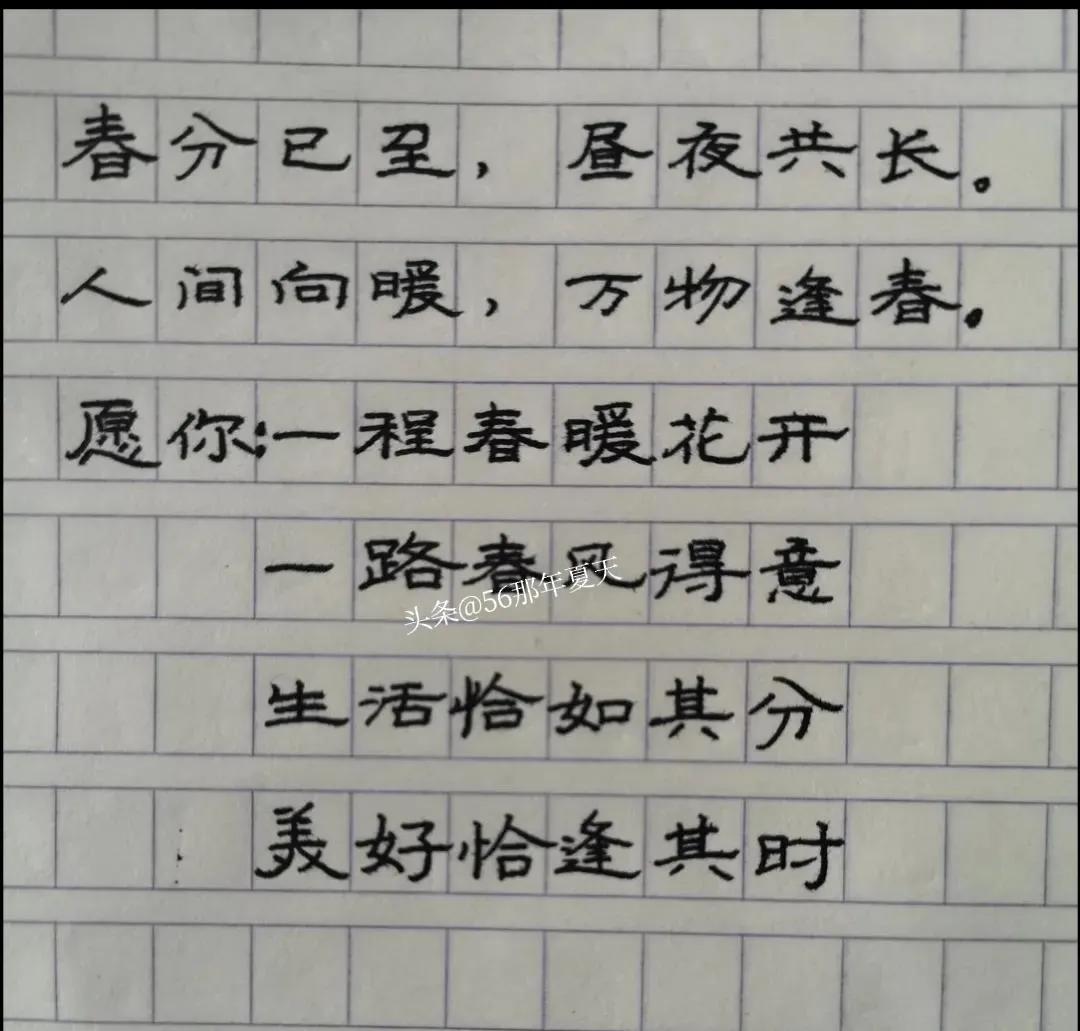 春分已至，昼夜共长。
人间向暖，万物逢春。
愿你:一程春暖花开
一路春风得意
头条@56那年夏天
生活恰如其分
美好恰逢其时